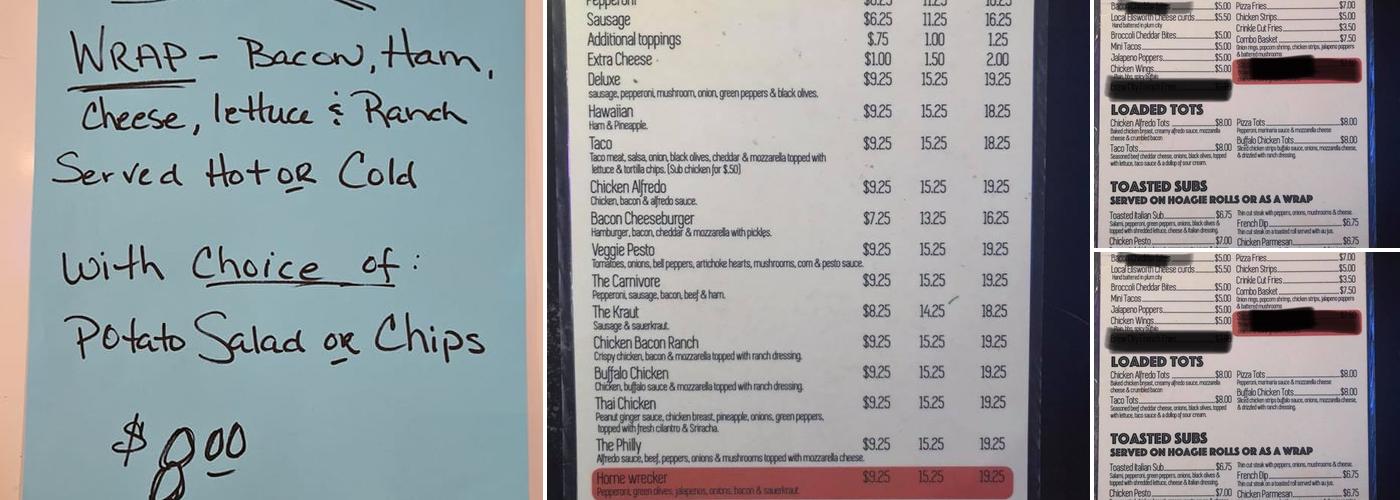 WRAP - Bacon, Ham,
Cheese, lettuce & Ranch
Served Hot or Cold
With Choice of:
Potato Salad or Chips
$8.00
Pepperoni $6.25 11.25 16.25
Sausage $6.25 11.25 16.25
Additional toppings $.75 1.00 1.25
Extra Cheese $1.00 1.50 2.00
Deluxe $9.25 15.25 19.25
sausage, pepperoni, mushroom, onion, green peppers & black olives.
Hawaiian $9.25 15.25 18.25
Ham & Pineapple.
Taco $9.25 15.25 18.25
Taco meat, salsa, onion, black olives, cheddar & mozzarella topped with
lettuce & tortilla chips. (Sub chicken for $.50)
Chicken Alfredo $9.25 15.25 19.25
Chicken, bacon & alfredo sauce.
Bacon Cheeseburger $7.25 13.25 16.25
Hamburger, bacon, cheddar & mozzarella with pickles.
Veggie Pesto $9.25 15.25 19.25
Tomatoes, onions, bell peppers, artichoke hearts, mushrooms, corn & pesto sauce.
The Carnivore $9.25 15.25 19.25
Pepperoni, sausage, bacon, beef & ham.
The Kraut $8.25 14.25 18.25
Sausage & sauerkraut.
Chicken Bacon Ranch $9.25 15.25 19.25
Crispy chicken, bacon & mozzarella topped with ranch dressing.
Buffalo Chicken $9.25 15.25 19.25
Chicken, buffalo sauce & mozzarella topped with ranch dressing.
Thai Chicken $9.25 15.25 19.25
Peanut ginger sauce, chicken breast, pineapple, onions, green peppers,
topped with fresh cilantro & Sriracha.
The Philly $9.25 15.25 19.25
Alfredo sauce, beef, peppers, onions & mushrooms topped with mozzarella cheese.
Home wrecker $9.25 15.25 19.25
Pepperoni, green olives, jalapenos, onions, bacon & sauerkraut.
$5.00
Local Ellsworth Cheese curds $5.50
Hand battered in plum city
Broccoli Cheddar Bites $5.00
Mini Tacos $5.00
Jalapeno Poppers $5.00
Chicken Wings $5.00
Pizza Fries $7.00
Chicken Strips $5.00
Crinkle Cut Fries $3.50
Combo Basket $7.50
Onion rings, popcorn shrimp, chicken strips, jalapeno poppers
& battered mushrooms
LOADED TOTS
Chicken Alfredo Tots $8.00
Baked chicken breast, creamy alfredo sauce, mozzarella
cheese & crumbled bacon
Taco Tots $8.00
Seasoned beef, cheddar cheese, onions, black olives, topped
with lettuce, taco sauce & a dollop of sour cream.
Pizza Tots $8.00
Pepperoni, marinara sauce & mozzarella cheese
Buffalo Chicken Tots $8.00
Sliced chicken strips buffalo sauce, onions, mozzarella cheese,
& drizzled with ranch dressing.
TOASTED SUBS
SERVED ON HOAGIE ROLLS OR AS A WRAP
Toasted Italian Sub $6.75
Salami, pepperoni, green peppers, onions, black olives &
topped with shredded lettuce, cheese & Italian dressing.
Chicken Pesto $7.00
Thin cut steak with peppers, onions, mushrooms & cheese.
French Dip $6.75
Thin cut steak on a toasted roll served with au jus.
Chicken Parmesan $6.75
$5.00
Local Ellsworth Cheese curds $5.50
Hand battered in plum city
Broccoli Cheddar Bites $5.00
Mini Tacos $5.00
Jalapeno Poppers $5.00
Chicken Wings $5.00
Pizza Fries $7.00
Chicken Strips $5.00
Crinkle Cut Fries $3.50
Combo Basket $7.50
Onion rings, popcorn shrimp, chicken strips, jalapeno poppers
& battered mushrooms
LOADED TOTS
Chicken Alfredo Tots $8.00
Baked chicken breast, creamy alfredo sauce, mozzarella
cheese & crumbled bacon
Taco Tots $8.00
Seasoned beef, cheddar cheese, onions, black olives, topped
with lettuce, taco sauce & a dollop of sour cream.
Pizza Tots $8.00
Pepperoni, marinara sauce & mozzarella cheese
Buffalo Chicken Tots $8.00
Sliced chicken strips buffalo sauce, onions, mozzarella cheese,
& drizzled with ranch dressing.
TOASTED SUBS
SERVED ON HOAGIE ROLLS OR AS A WRAP
Toasted Italian Sub $6.75
Salami, pepperoni, green peppers, onions, black olives &
topped with shredded lettuce, cheese & Italian dressing.
Chicken Pesto $7.00
Thin cut steak with peppers, onions, mushrooms & cheese.
French Dip $6.75
Thin cut steak on a toasted roll served with au jus.
Chicken Parmesan $6.75